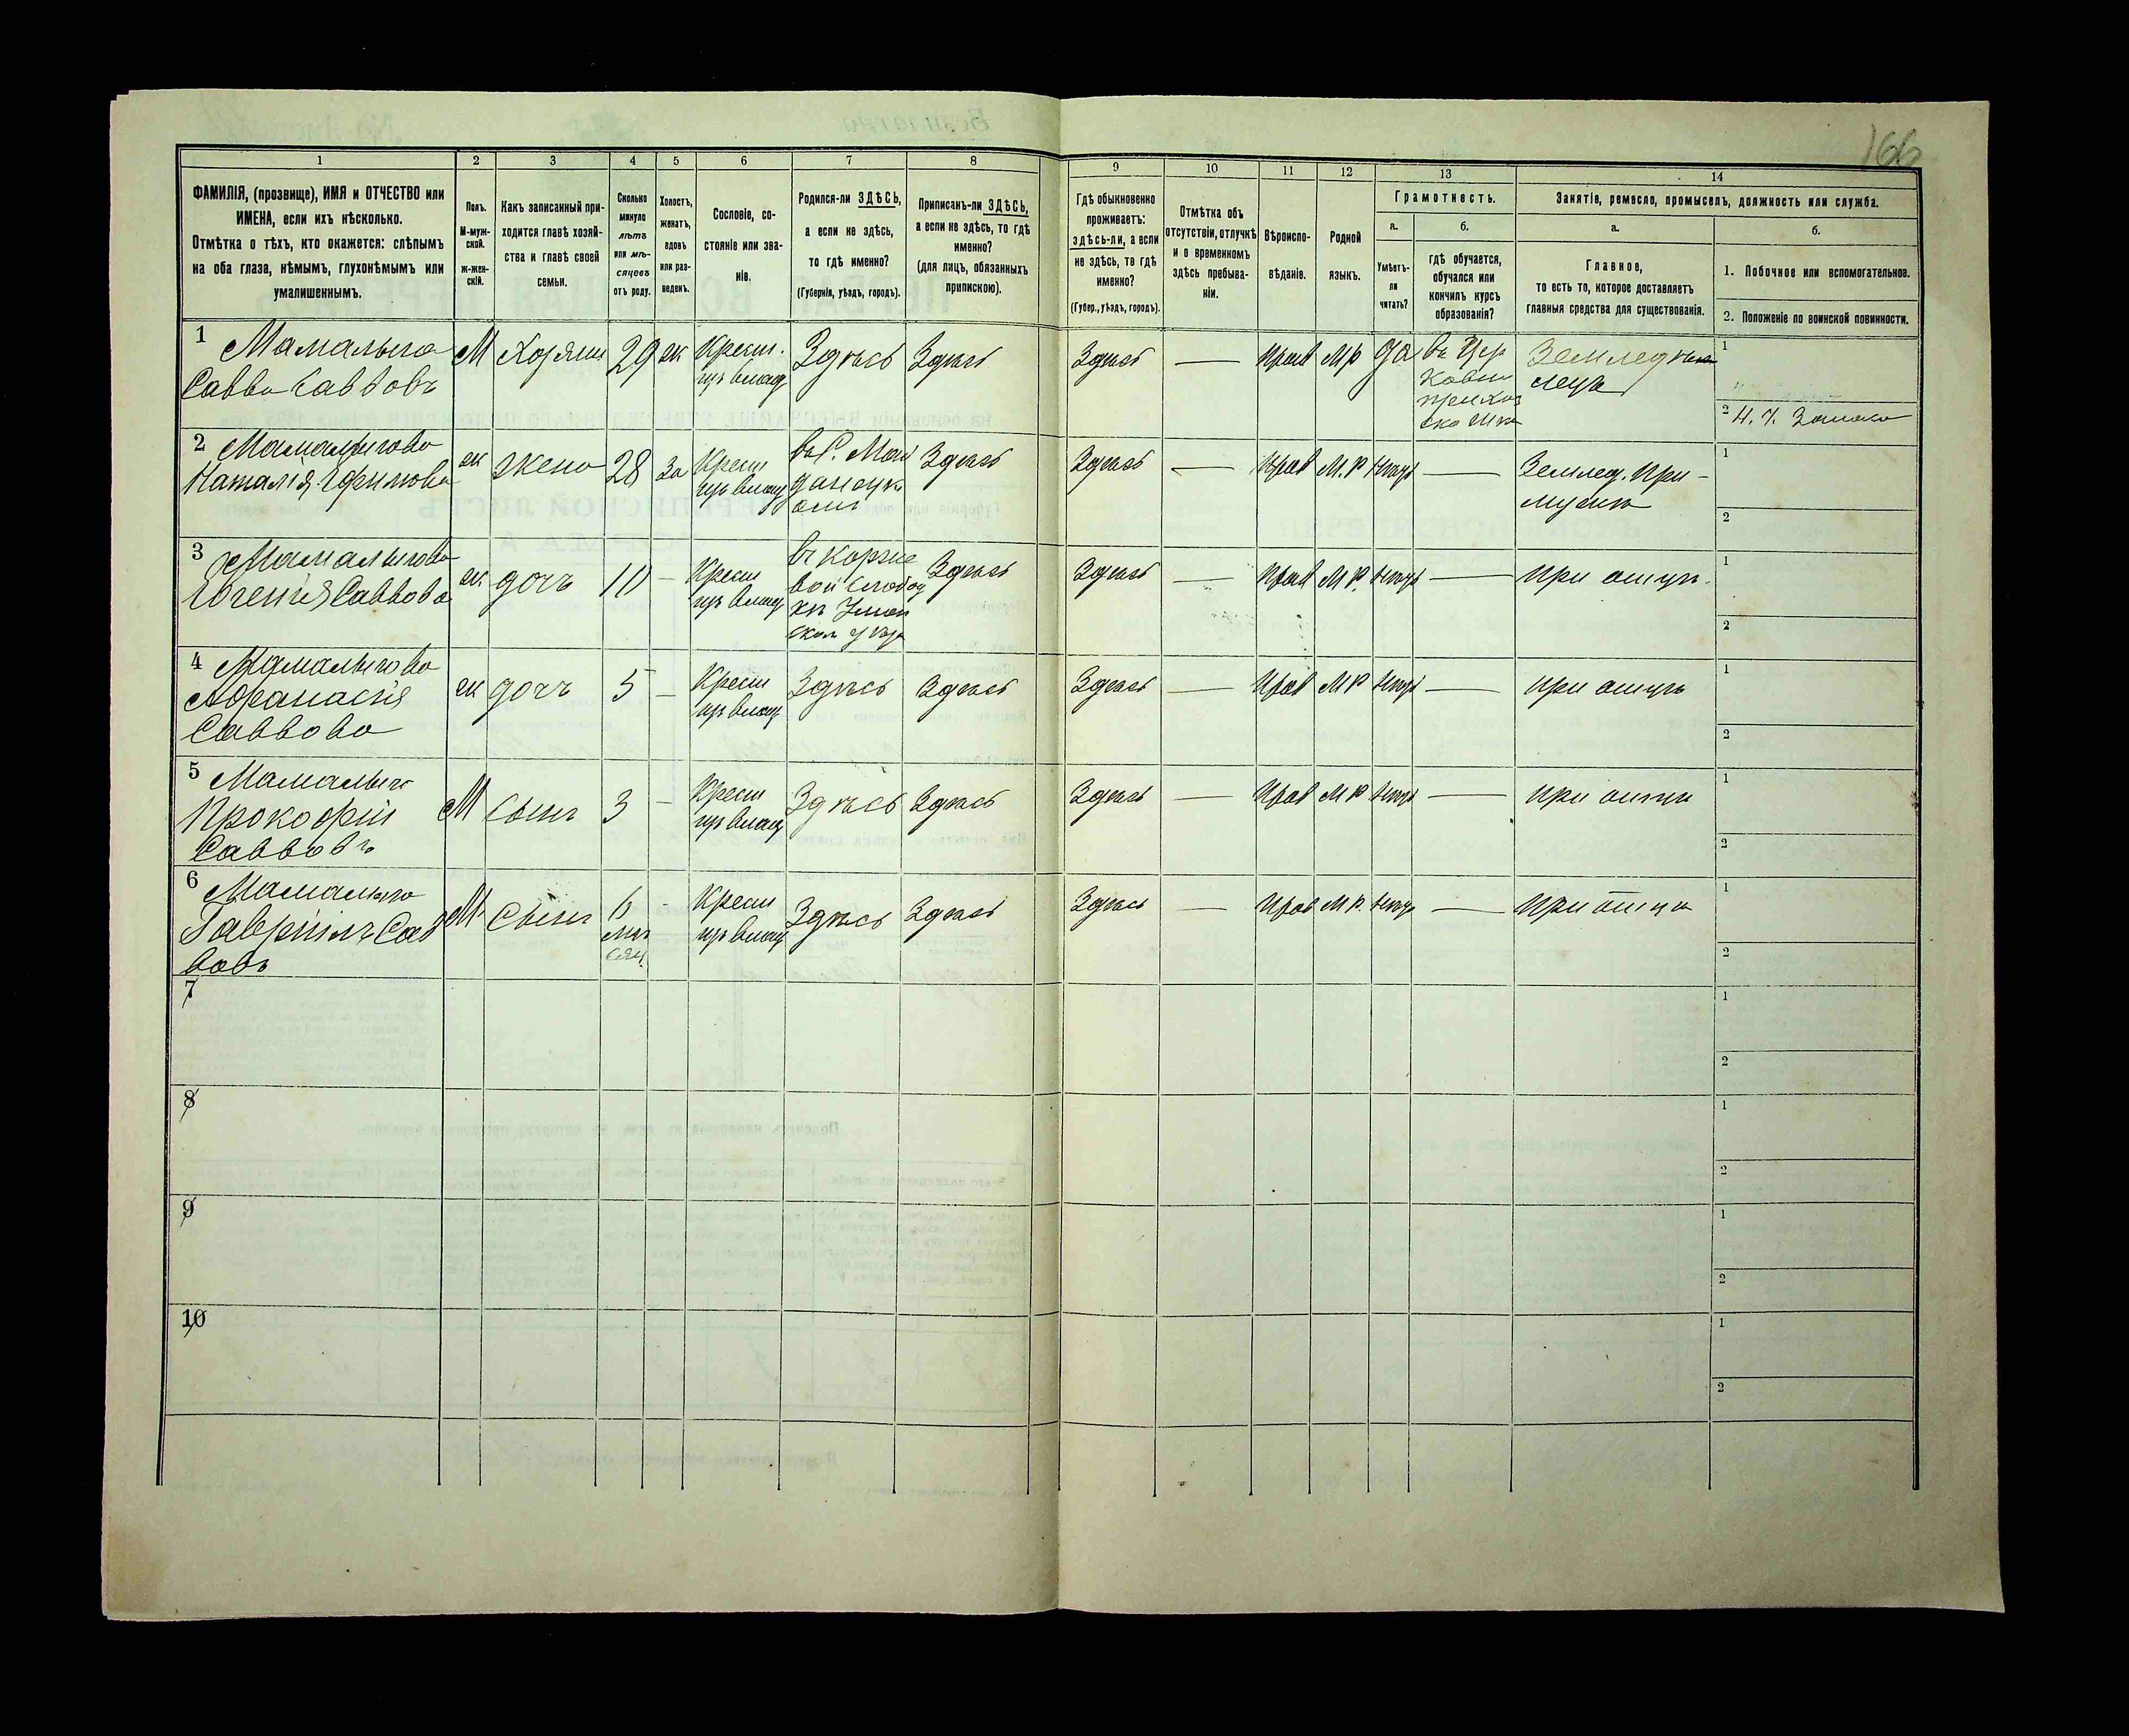 166
1
2
3
4
5
6
7
8
9
10
11
12
13
14
ФАМИЛІЯ, (прозвище), ИМЯ и ОТЧЕСТВО или
ИМЕНА, если ихъ нѣсколько.
Отмѣтка о тѣхъ, кто окажется: слѣпымъ
на оба глаза, нѣмымъ, глухонѣмымъ или
умалишеннымъ.
Полъ.
М-муж-
ской.
ж-жен-
скій.
Какъ записанный при-
ходится главѣ хозяй-
ства и главѣ своей
семьи.
Сколько
минуло
лѣтъ
или мѣ-
сяцевъ
отъ роду.
Холостъ,
женатъ,
вдовъ
или раз-
веденъ.
Сословіе, со-
стояніе или зва-
ніе.
Родился-ли ЗДѢСЬ,
а если не здѣсь,
то гдѣ именно?
(Губернія, уѣздъ, городъ).
Приписанъ-ли ЗДѢСЬ,
а если не здѣсь, то гдѣ
именно?
(для лицъ, обязанныхъ
припискою).
Гдѣ обыкновенно
проживаетъ:
здѣсь-ли, а если
не здѣсь, то гдѣ
именно?
(Губер., уѣздъ, городъ).
Отмѣтка объ
отсутствіи, отлучкѣ
и о временномъ
здѣсь пребыва-
ніи.
Вѣроиспо-
вѣданіе.
Родной
языкъ.
Грамотность.
а.
Умѣетъ-
ли
читать?
б.
гдѣ обучается,
обучался или
кончилъ курсъ
образованія?
Занятіе, ремесло, промыселъ, должность или служба.
а.
Главное,
то есть то, которое доставляетъ
главныя средства для существованія.
б.
1. Побочное или вспомогательное.
2. Положеніе по воинской повинности.
1 Мамалыга
Савва Саввовъ
М Хозяин 29 ж Крест. Здѣсь Здѣсь Здѣсь — Прав М р да въ Цер Земледѣ 1
из влад ковно лецъ
приход
ско 2
2 Мамалыгова
Наталія Ефимова
ж жена 28 за Крест
из влад
въ С. Май
данецк
Здѣсь Здѣсь — Прав М. р нѣтъ — Землед. при 1
мужѣ
2
3 Мамалыгова
Евгенія Саввова
ж дочъ 10 — Крест
из влад
въ Корже
вой Слобод
кѣ Уман
ском уѣзд
Здѣсь Здѣсь — Прав М. р. нѣтъ — при отцѣ. 1
2
4 Мамалыгова
Афанасія
Саввова
ж дочъ 5 — Крест Здѣсь Здѣсь Здѣсь — Прав М р нѣтъ — при отцѣ 1
из влад
2
5 Мамалыга
Прокофій
Саввовъ
М Сынъ 3 — Крест Здѣсь Здѣсь Здѣсь — Прав М р нѣтъ — при отцѣ 1
из влад
2
6 Мамалыга
Гавріилъ Сав
вовъ
М Сынъ 6 - Крест Здѣсь Здѣсь Здѣсь — Прав М р. нѣтъ — при отцѣ 1
мѣ из влад
сяц.
2
7 1
2
8 1
2
9 1
2
10 1
2